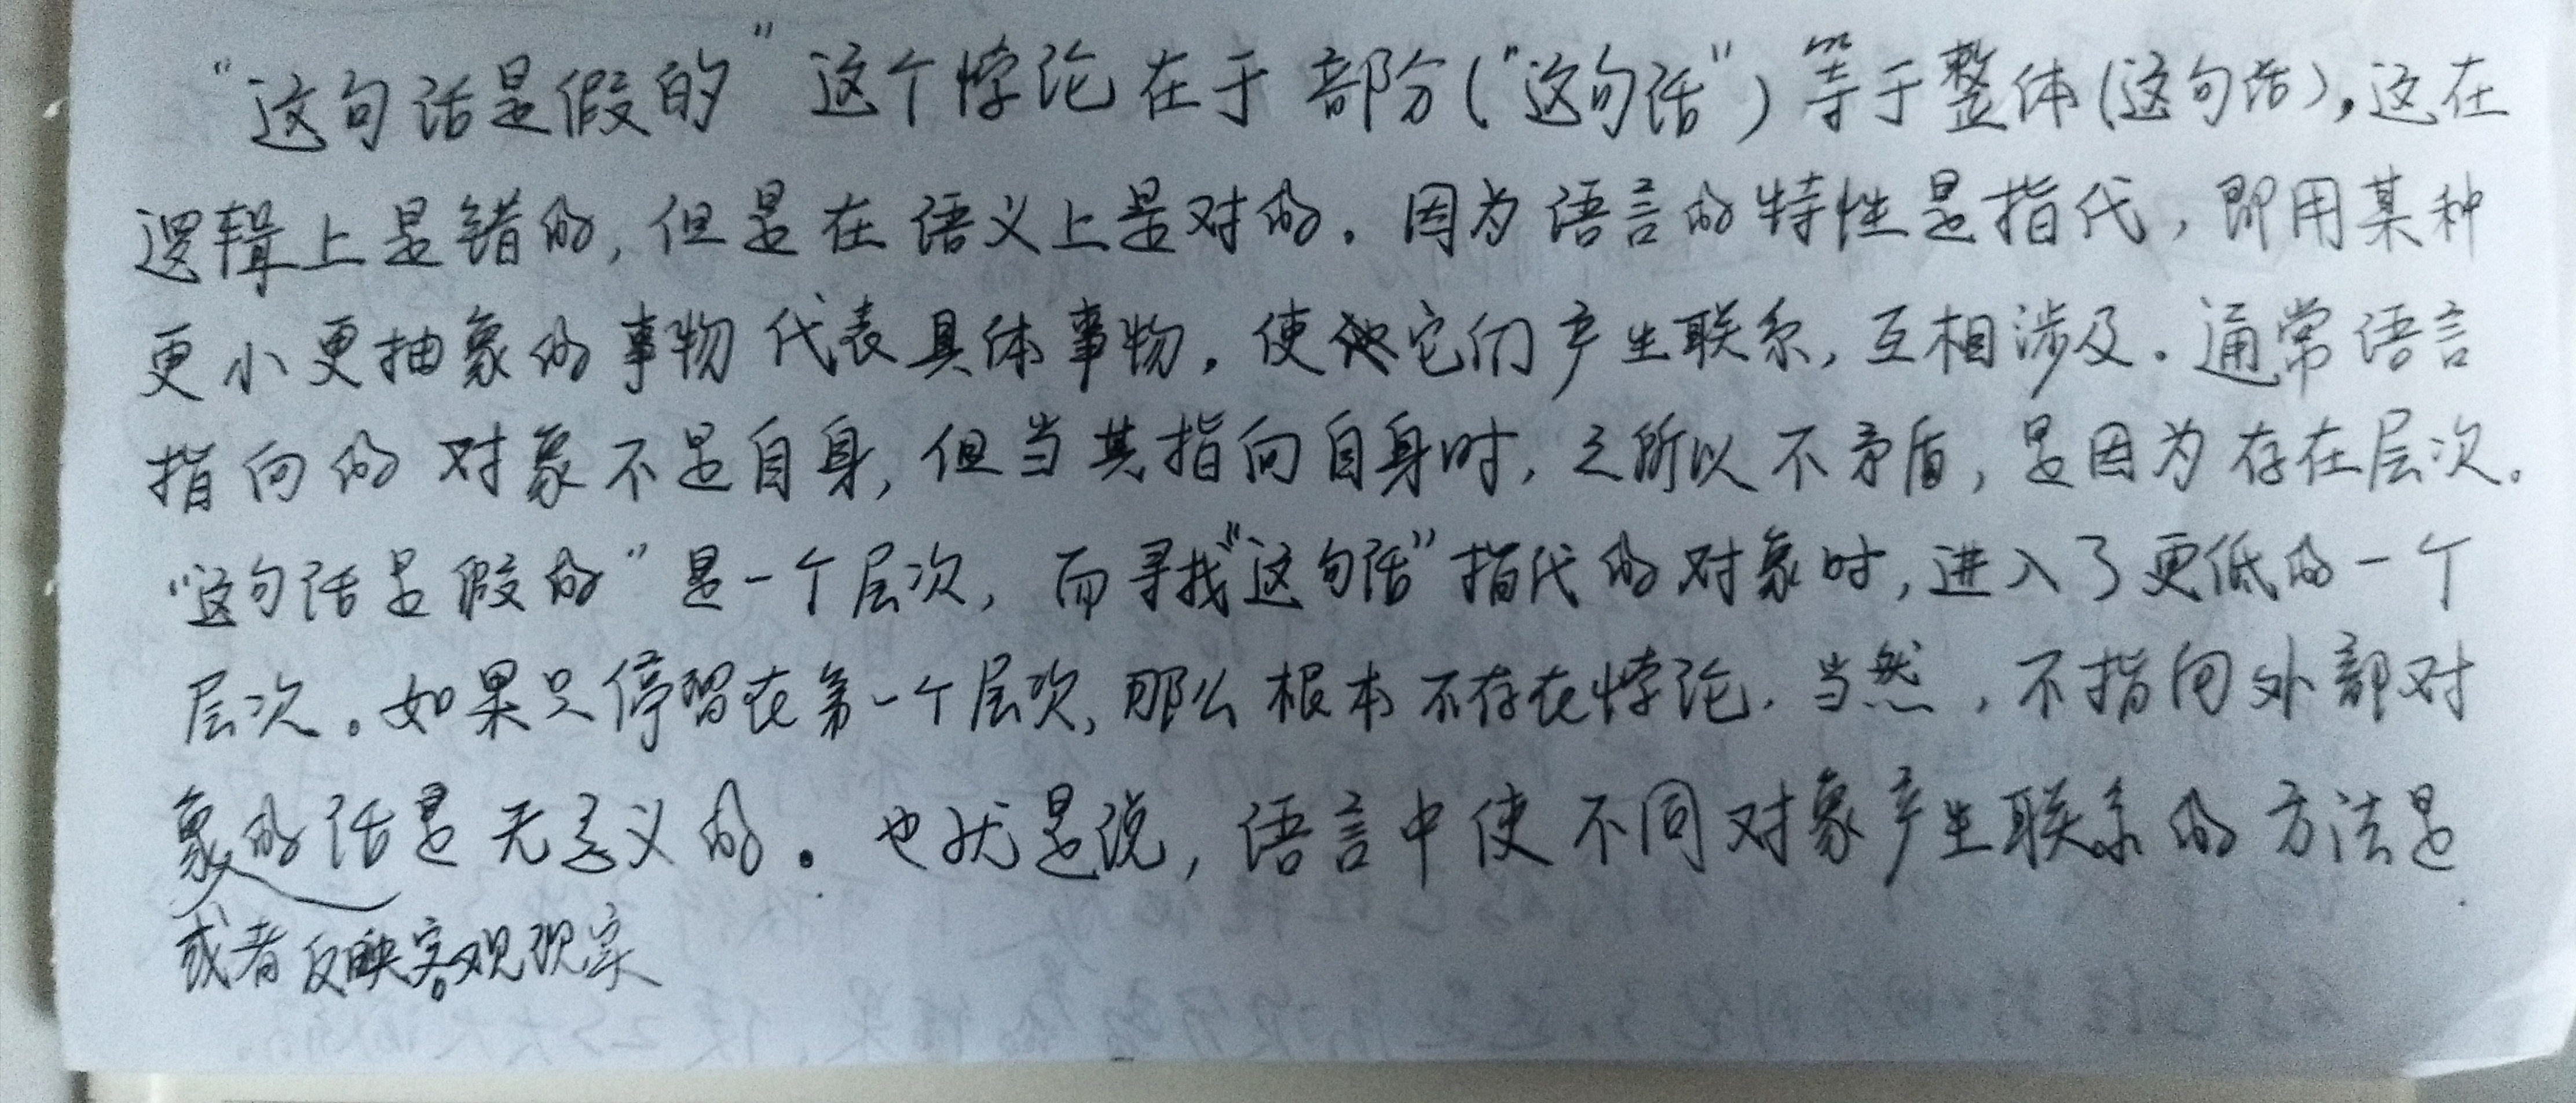 "这句话是假的"这个悖论在于部分("这句话")等于整体(这句话),这在
逻辑上是错的,但是在语义上是对的。因为语言的特性是指代,即用某种
更小更抽象的事物代表具体事物,使它们产生联系,互相涉及。通常语言
指向的对象不是自身,但当其指向自身时,之所以不矛盾,是因为存在层次。
"这句话是假的"是一个层次,而寻找"这句话"指代的对象时,进入了更低的一个
层次。如果只停留在第一个层次,那么根本不存在悖论。当然,不指向外部对
象的话是无意义的。也就是说,语言中使不同对象产生联系的方法是
或者反映客观现实